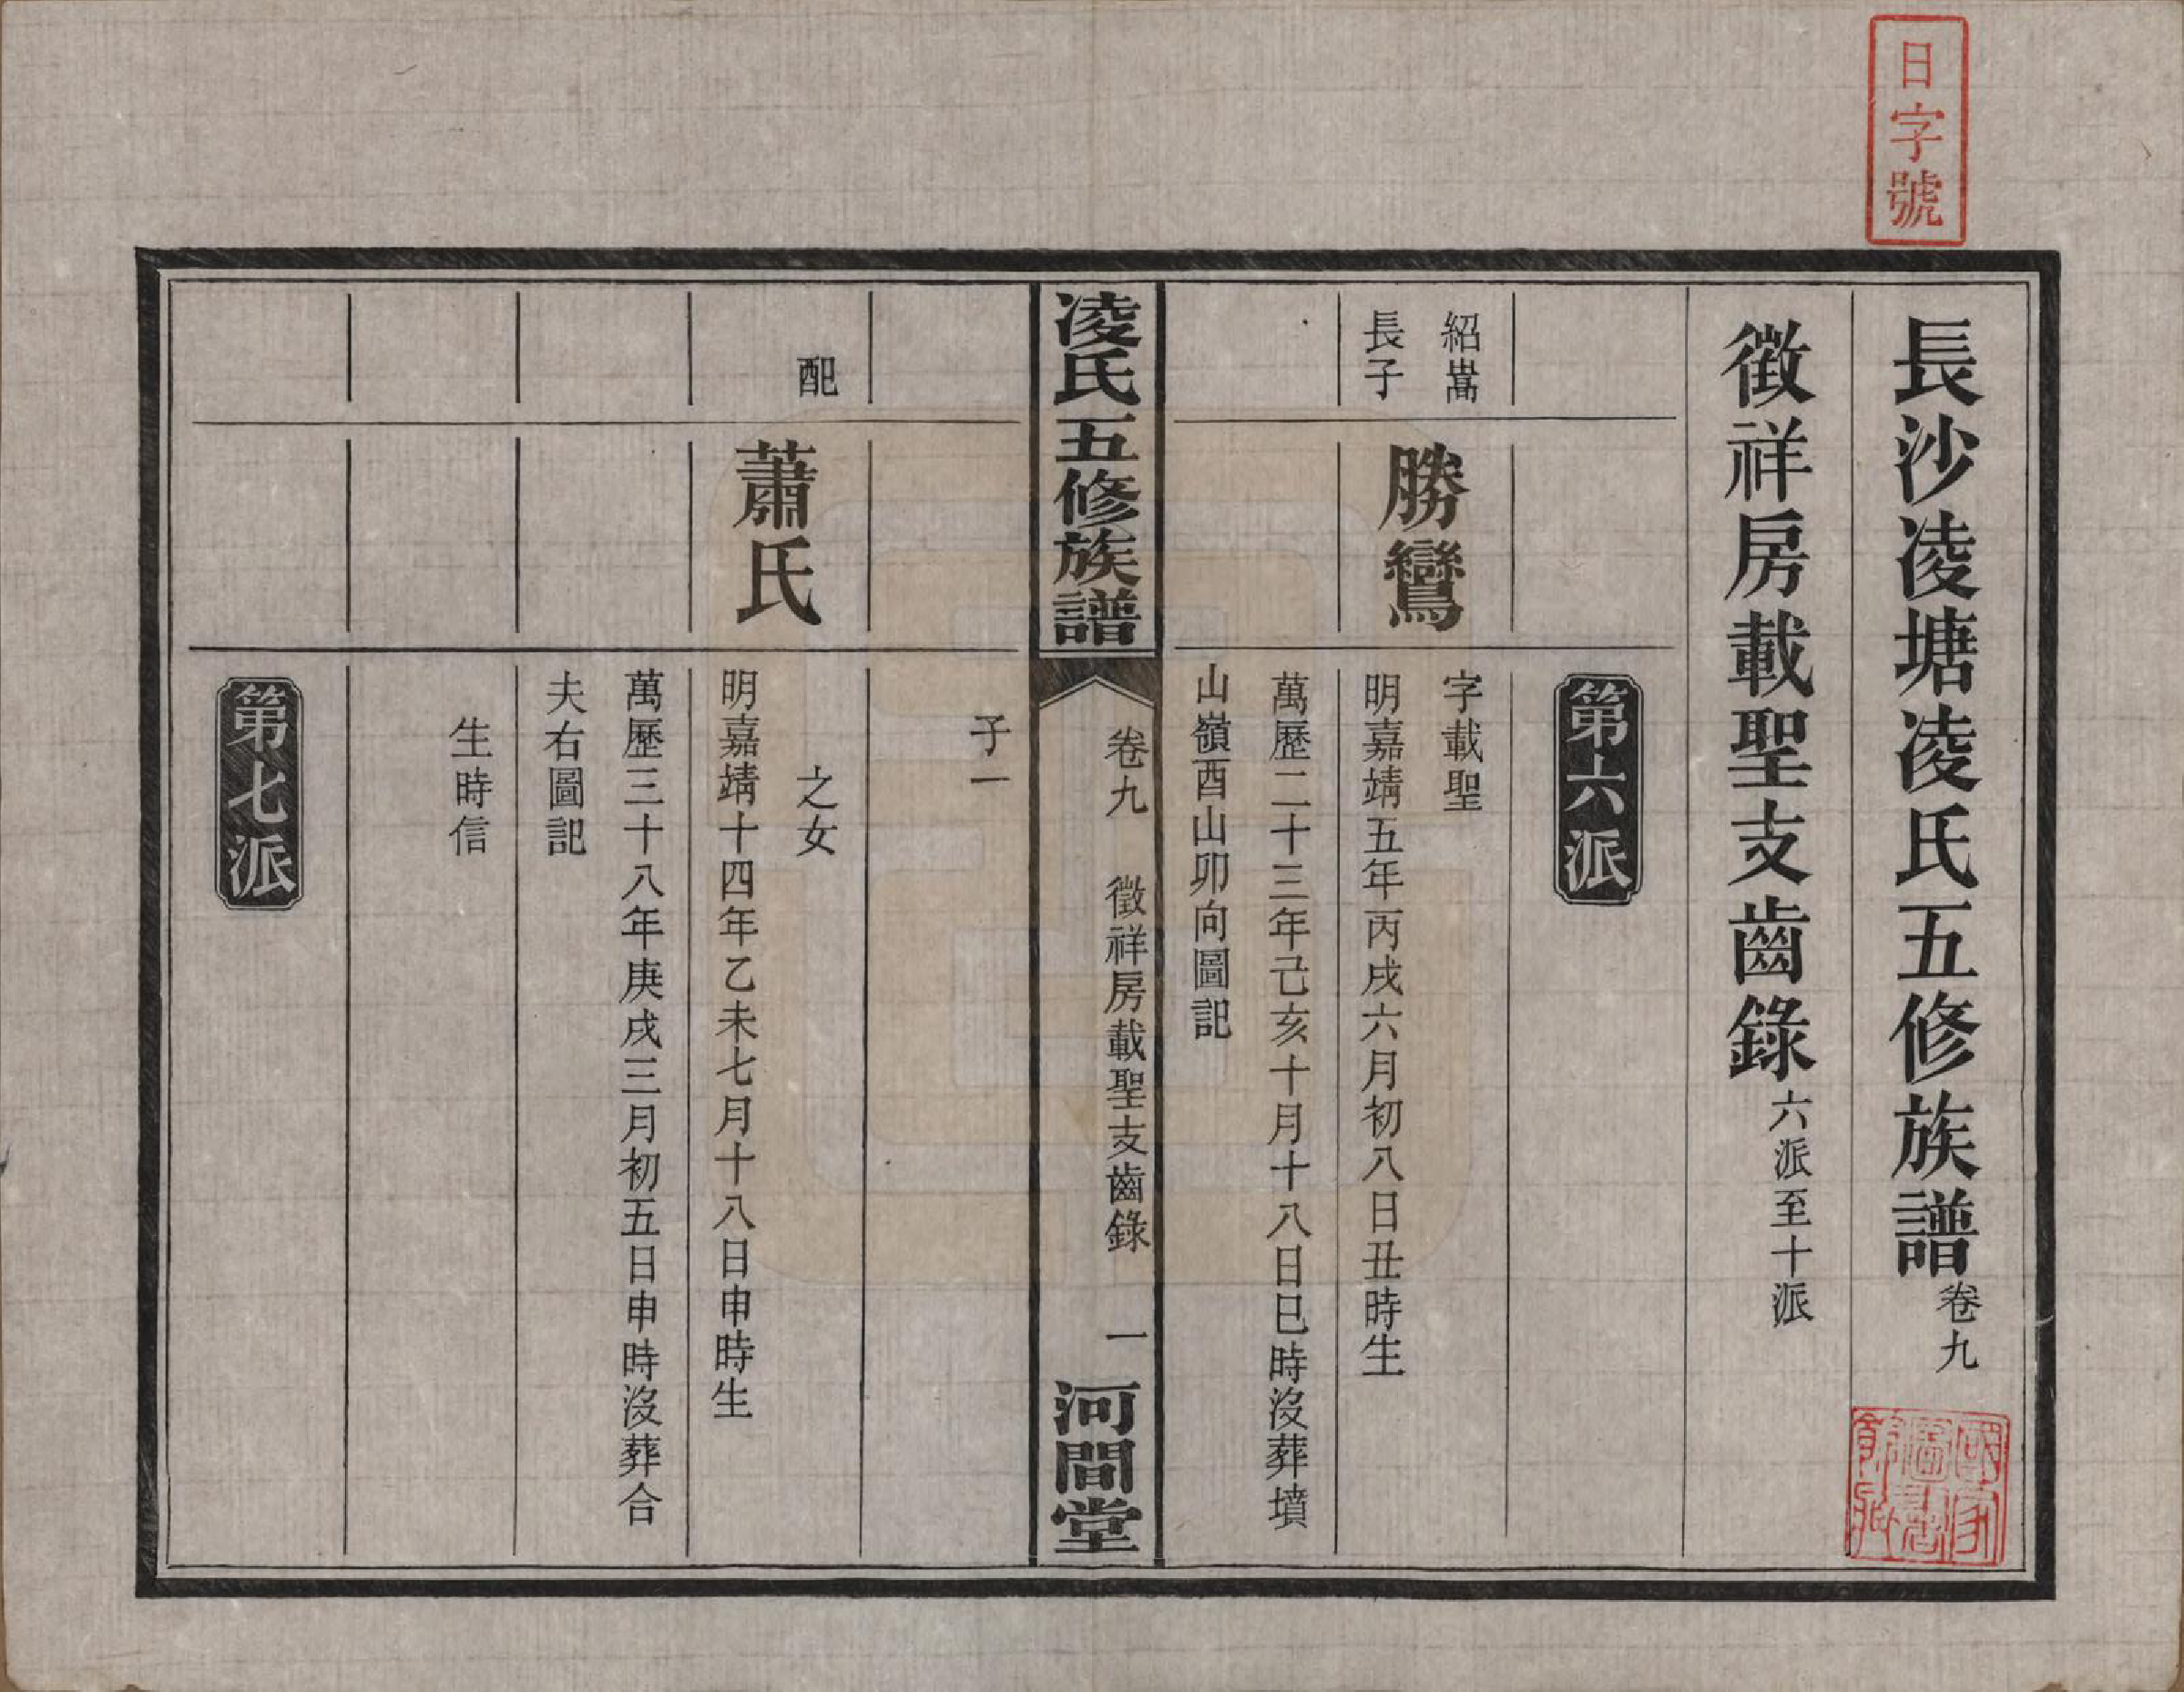 日字號
長沙凌塘凌氏五修族譜卷九
徵祥房載聖支齒錄六派至十派
第六派
紹嵩
長子
勝鸞
字載聖
明嘉靖五年丙戌六月初八日丑時生
萬歷二十三年己亥十月十八日巳時沒葬墳
山嶺酉山卯向圖記
凌氏五修族譜
卷九 徵祥房載聖支齒錄 一
河間堂
子一
配
蕭氏
之女
明嘉靖十四年乙未七月十八日申時生
萬歷三十八年庚戌三月初五日申時沒葬合
夫右圖記
生時信
第七派